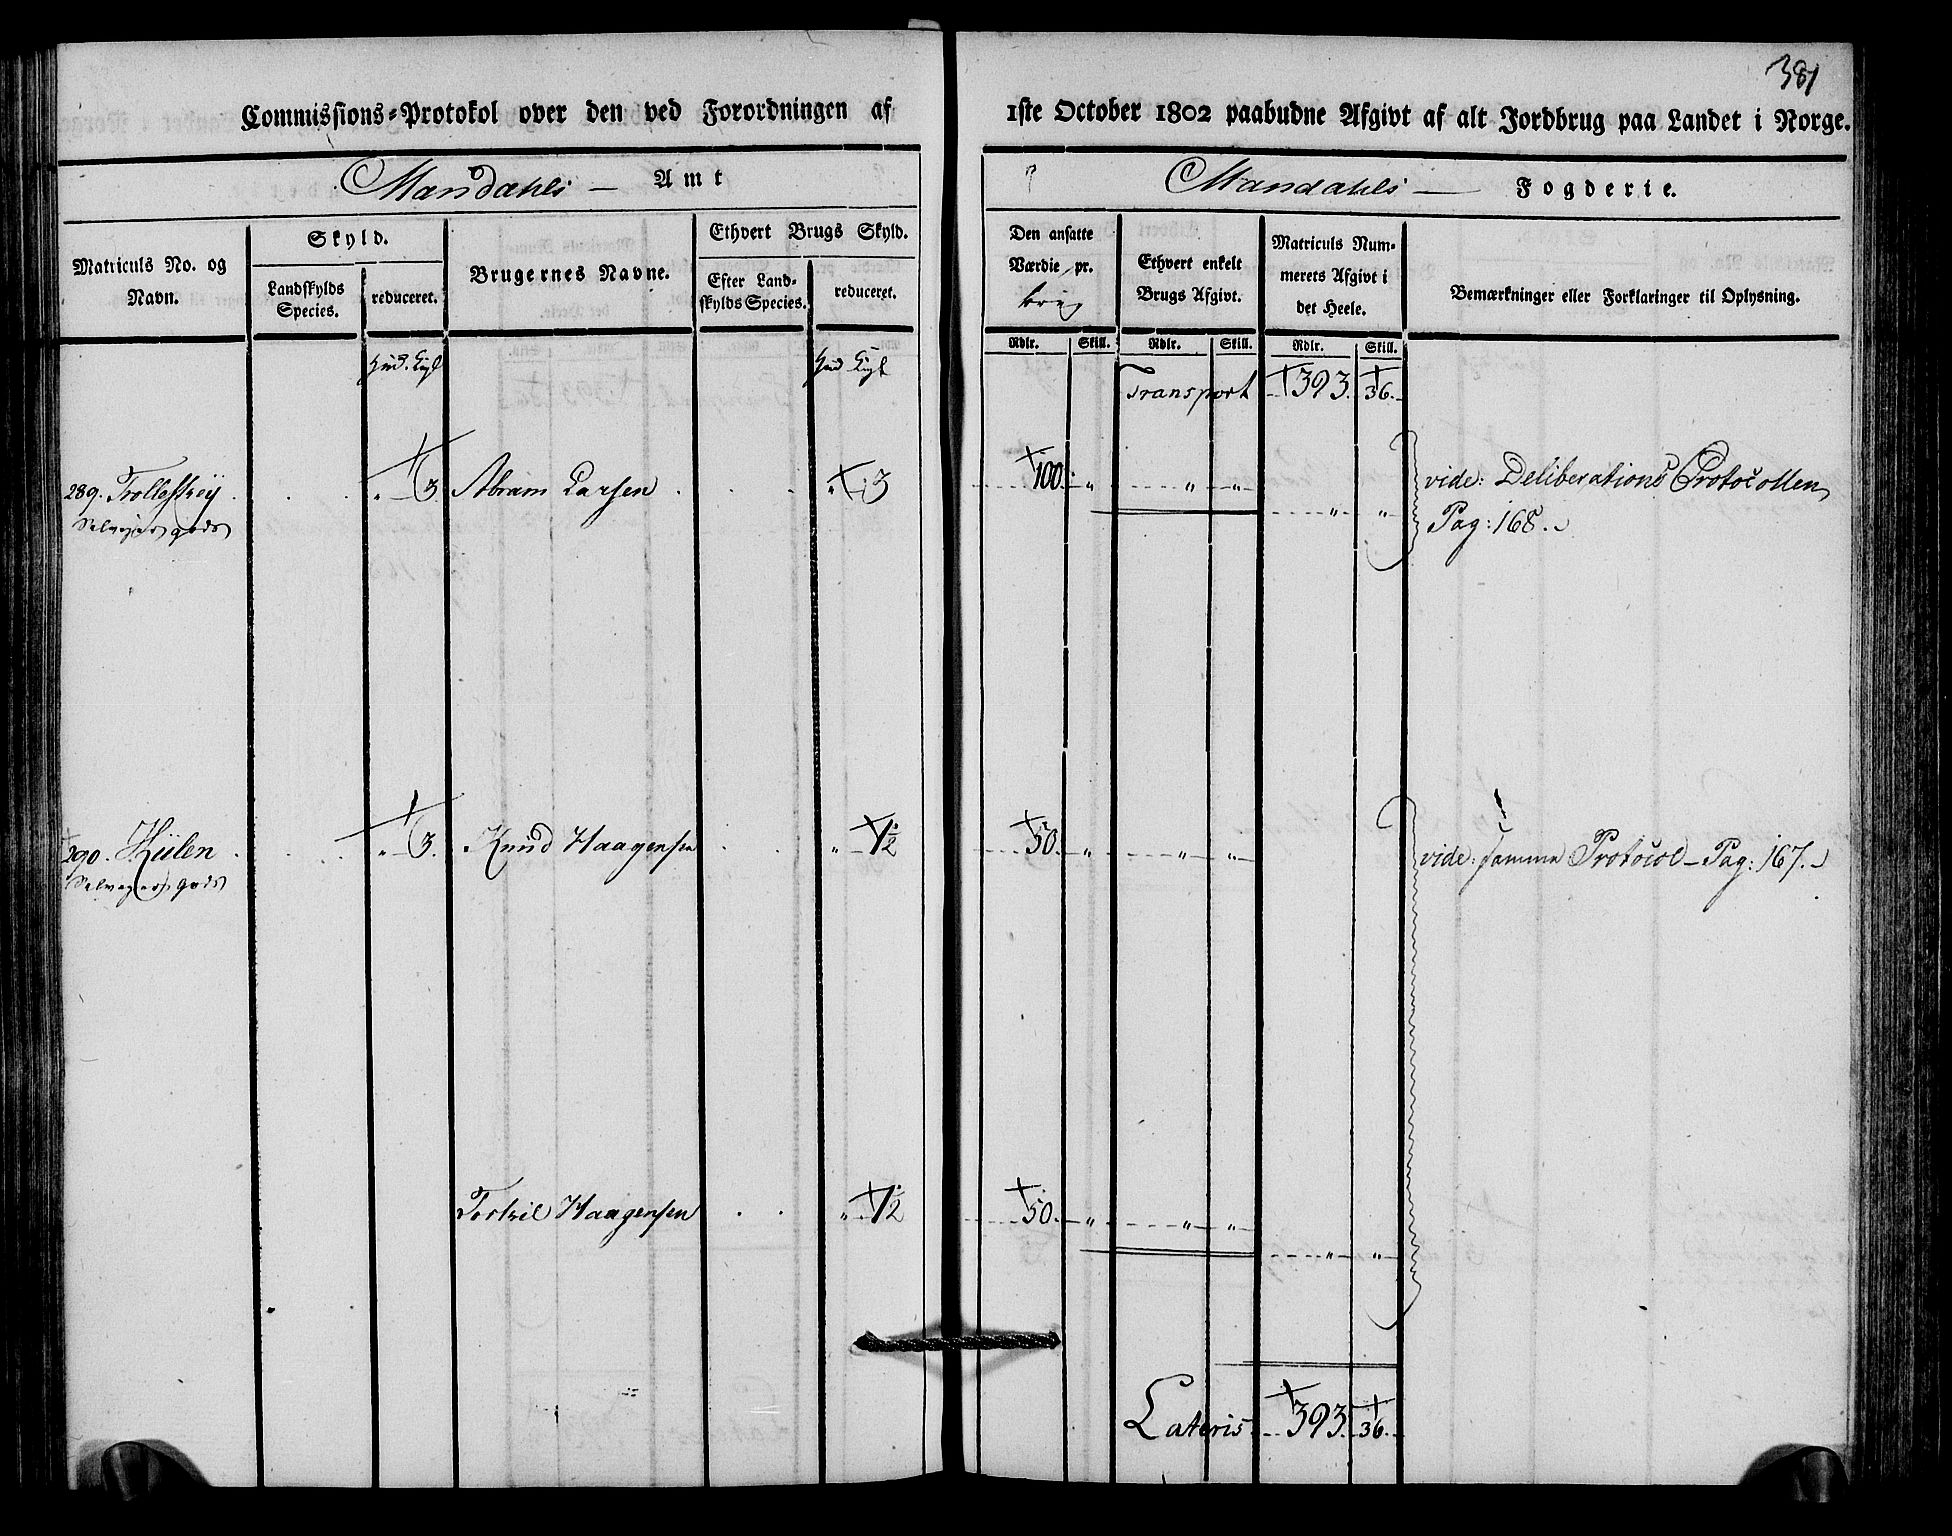 381
Commissions=Protokol over den ved Forordningen af 1ste October 1802 paabudne Afgivt af alt Jordbrug paa Landet i Norge.
Mandahls — Amt
Mandahls — Fogderie.
Matriculs No. og Navn.
Skyld.
Landskylds Species.
reduceret.
Brugernes Navne.
Ethvert Brugs Skyld.
Efter Landskylds Species.
reduceret.
Den ansatte Værdie pr. brug
Ethvert enkelt Brugs Afgivt.
Matriculs Nummerets Afgivt i det Heele.
Bemærkninger eller Forklaringer til Oplysning.
Rdlr. Skill. Rdlr. Skill. Rdlr. Skill.
Transport 393. 36.
289. Trollestrey . . . " 3. Abram Larsen . . . " 3 100. " " " vide: Deliberations Protocollen
Selvejer gods " " Pag: 168.
290. Hülen . . . " 3. Knud Haagensen . . " 1½ 50. " " " vide: samme Protocol – Pag: 167.
Selvejer gods
Torkil Haagensen . . " 1½ 50. " " "
" "
Lateris 393. 36.